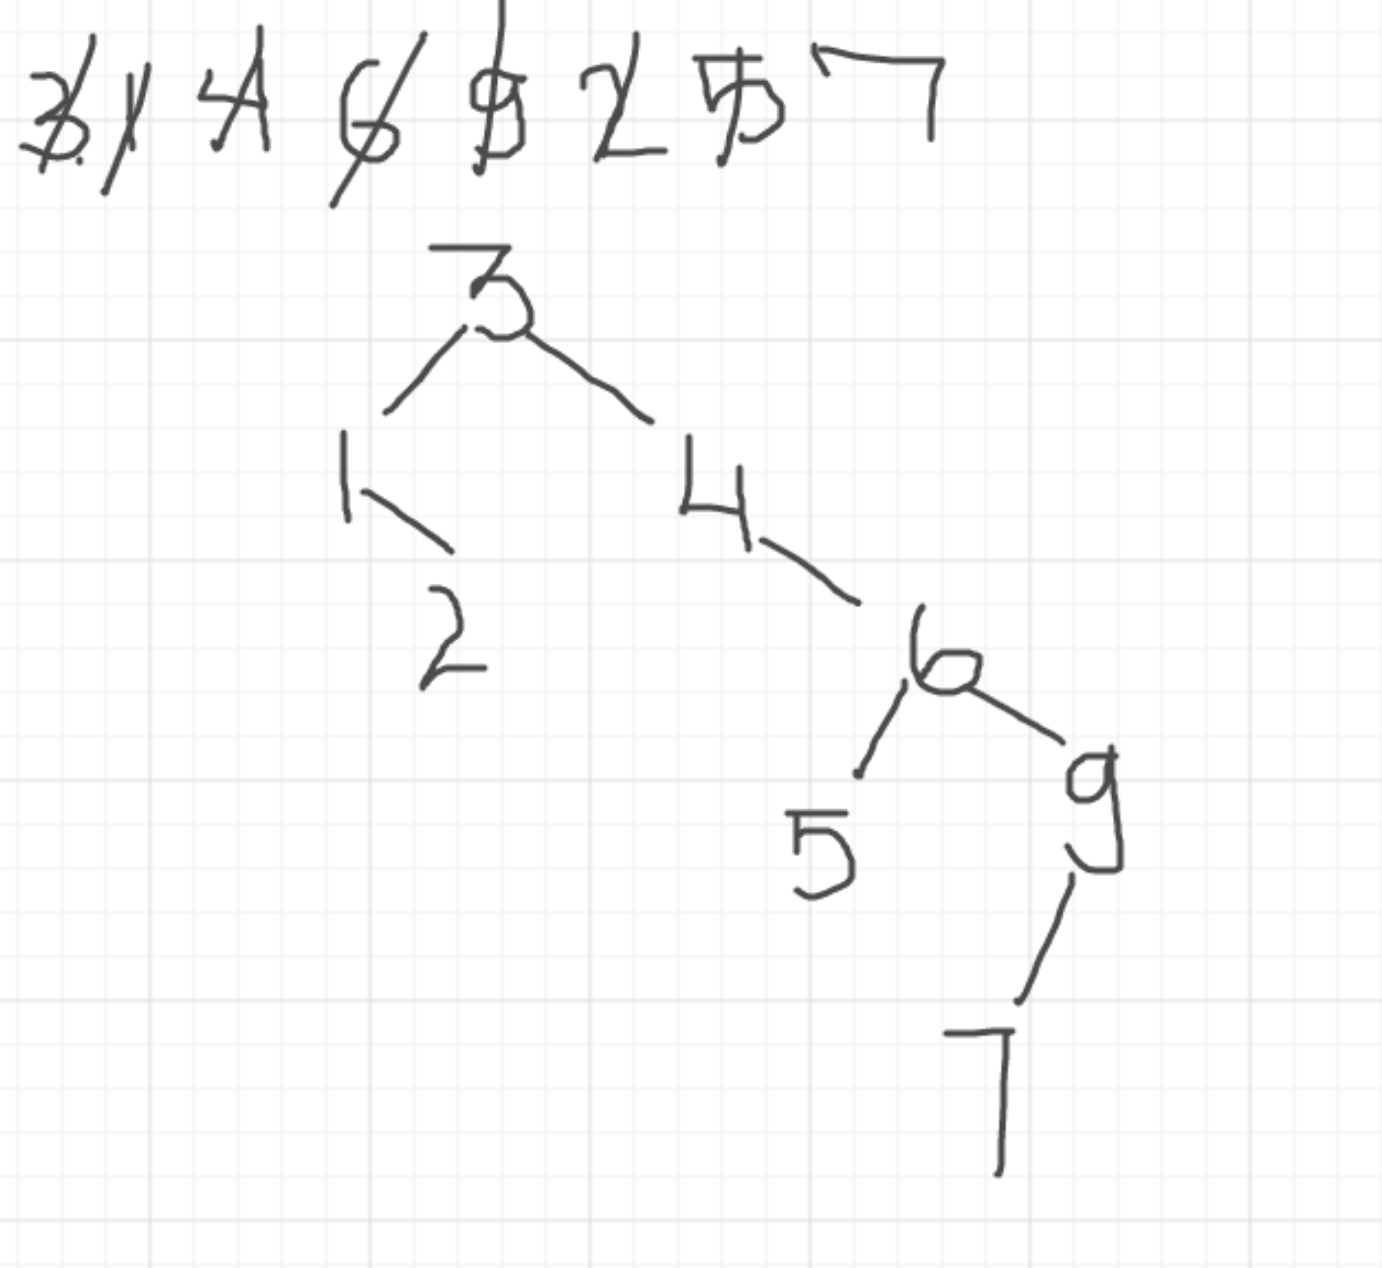 3 1 4 6 9 2 5 7
3
1 4
2 6
5 9
7